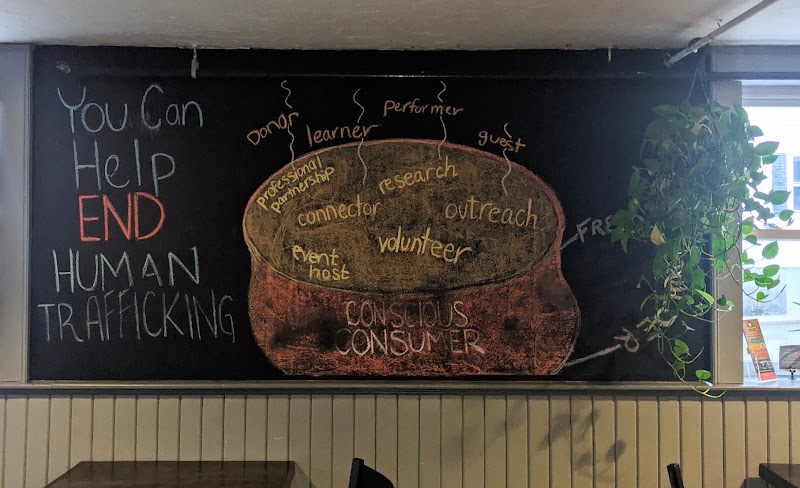 You Can
Help
END
HUMAN
TRAFFICKING
Donor
learner
performer
guest
professional
partnership
research
connector
outreach
volunteer
event
host
CONSCIOUS
CONSUMER
FRE